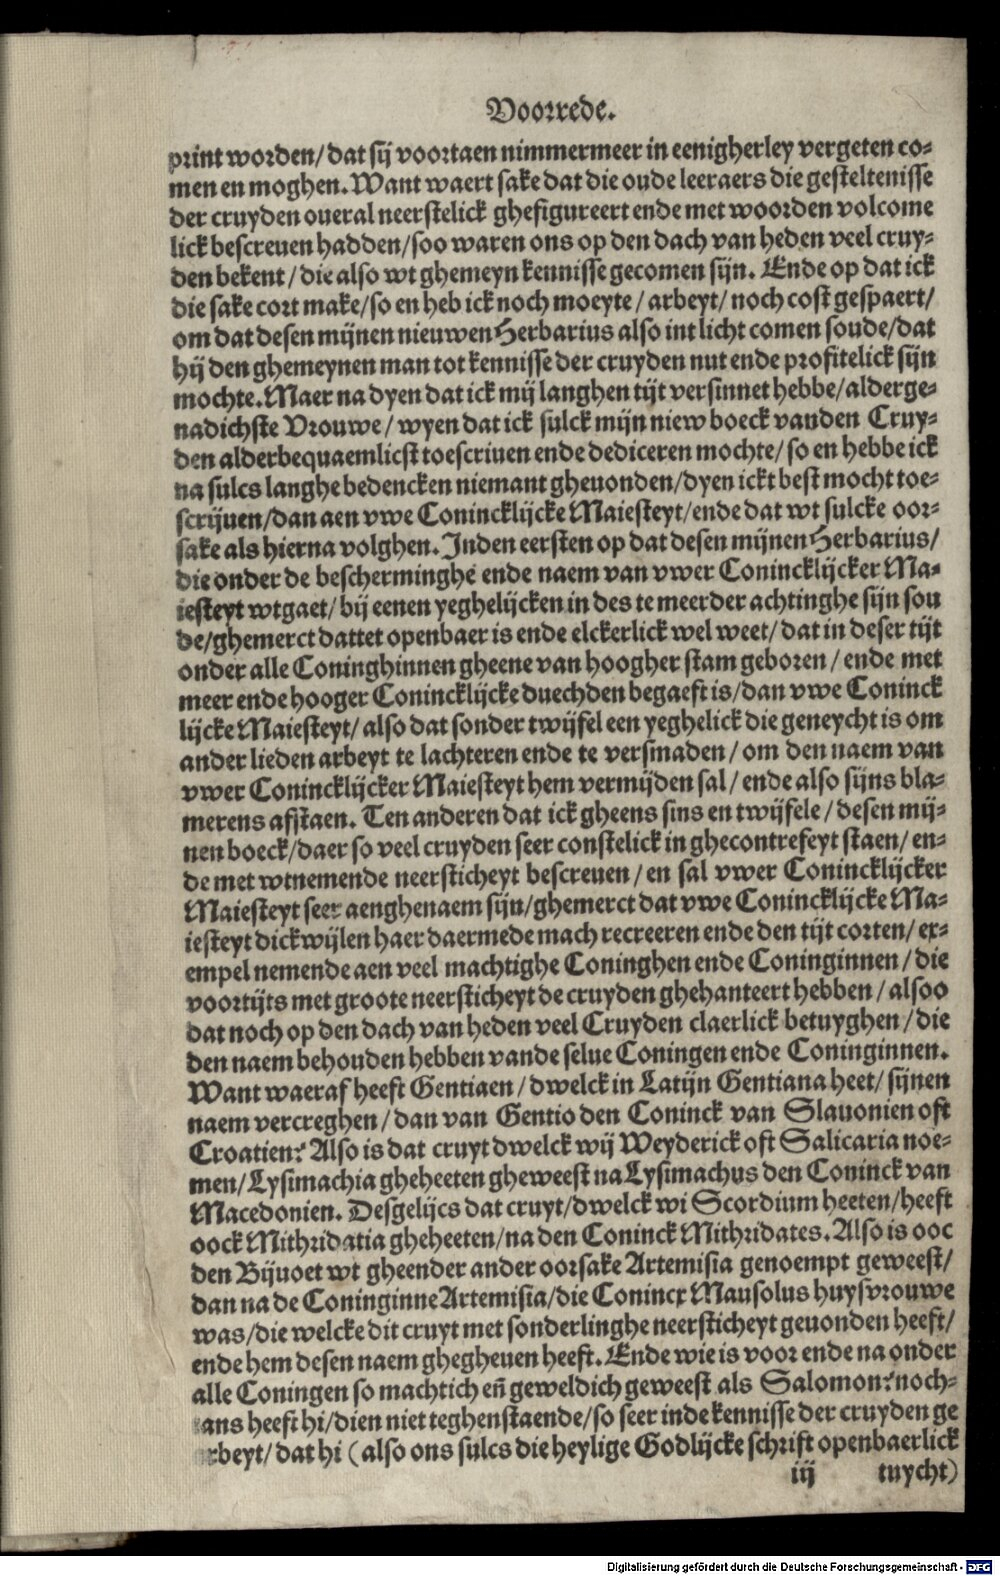 Voorrede.
print worden/dat sij voortaen nimmermeer in eenigherley vergeten co-
men en moghen. Want waert sake dat die oude leeraers die gesteltenisse
der cruyden oueral neerstelick ghefigureert ende met woorden volcome
lick bescreuen hadden/soo waren ons op den dach van heden veel cruy-
den bekent/die also wt ghemeyn kennisse gecomen sijn. Ende op dat ick
die sake cort make/so en heb ick noch moeyte/arbeyt/noch cost gespaert/
om dat desen mijnen nieuwen Herbarius also int licht comen soude/dat
hij den ghemeynen man tot kennisse der cruyden nut ende profitelick sijn
mochte. Maer na dyen dat ick mij langhen tijt versinnet hebbe/alderge-
nadichste Vrouwe/wyen dat ick sulck mijn niew boeck vanden Cruy-
den alderbequaemlicst toescriuen ende dediceren mochte/so en hebbe ick
na sulcs langhe bedencken niemant gheuonden/dyen ickt best mocht toe-
scrijuen/dan aen vwe Conincklijcke Maiesteyt/ende dat wt sulcke oor-
sake als hierna volghen. Inden eersten op dat desen mijnen Herbarius/
die onder de bescherminghe ende naem van vwer Conincklijcker Ma-
iesteyt wtgaet/bij eenen yeghelijcken in des te meerder achtinghe sijn sou
de/ghemerct dattet openbaer is ende elckerlick wel weet/dat in deser tijt
onder alle Coninghinnen gheene van hoogher stam geboren/ende met
meer ende hooger Conincklijcke duechden begaeft is/dan vwe Coninck
lijcke Maiesteyt/also dat sonder twijfel een yeghelick die geneycht is om
ander lieden arbeyt te lachteren ende te versmaden/om den naem van
vwer Conincklijcker Maiesteyt hem vermijden sal/ende also sijns bla-
merens afstaen. Ten anderen dat ick gheens sins en twijfele/desen mij-
nen boeck/daer so veel cruyden seer constelick in ghecontrefeyt staen/en-
de met wtnemende neersticheyt bescreuen/en sal vwer Conincklijcker
Maiesteyt seer aenghenaem sijn/ghemerct dat vwe Conincklijcke Ma-
iesteyt dickwijlen haer daermede mach recreeren ende den tijt corten/ex-
empel nemende aen veel machtighe Coninghen ende Coninginnen/die
voortijts met groote neersticheyt de cruyden ghehanteert hebben/alsoo
dat noch op den dach van heden veel Cruyden claerlick betuyghen/die
den naem behouden hebben vande selue Coningen ende Coninginnen.
Want waeraf heeft Gentiaen/dwelck in Latijn Gentiana heet/sijnen
naem vercreghen/dan van Gentio den Coninck van Slauonien oft
Croatien? Also is dat cruyt dwelck wij Weyderick oft Salicaria noe-
men/Lysimachia gheheeten gheweest na Lysimachus den Coninck van
Macedonien. Desgelijcs dat cruyt/dwelck wi Scordium heeten/heeft
oock Mithridatia gheheeten/na den Coninck Mithridates. Also is ooc
den Bijuoet wt gheender ander oorsake Artemisia genoempt geweest/
dan na de Coninginne Artemisia/die Conincx Mausolus huysvrouwe
was/die welcke dit cruyt met sonderlinghe neersticheyt geuonden heeft/
ende hem desen naem ghegheuen heeft. Ende wie is voor ende na onder
alle Coningen so machtich eñ geweldich geweest als Salomon? noch-
ans heeft hi/dien niet teghenstaende/so seer inde kennisse der cruyden ge
rbeyt/dat hi (also ons sulcs die heylige Godlijcke schrift openbaerlick
iij tuycht)
Digitalisierung gefördert durch die Deutsche Forschungsgemeinschaft - DFG